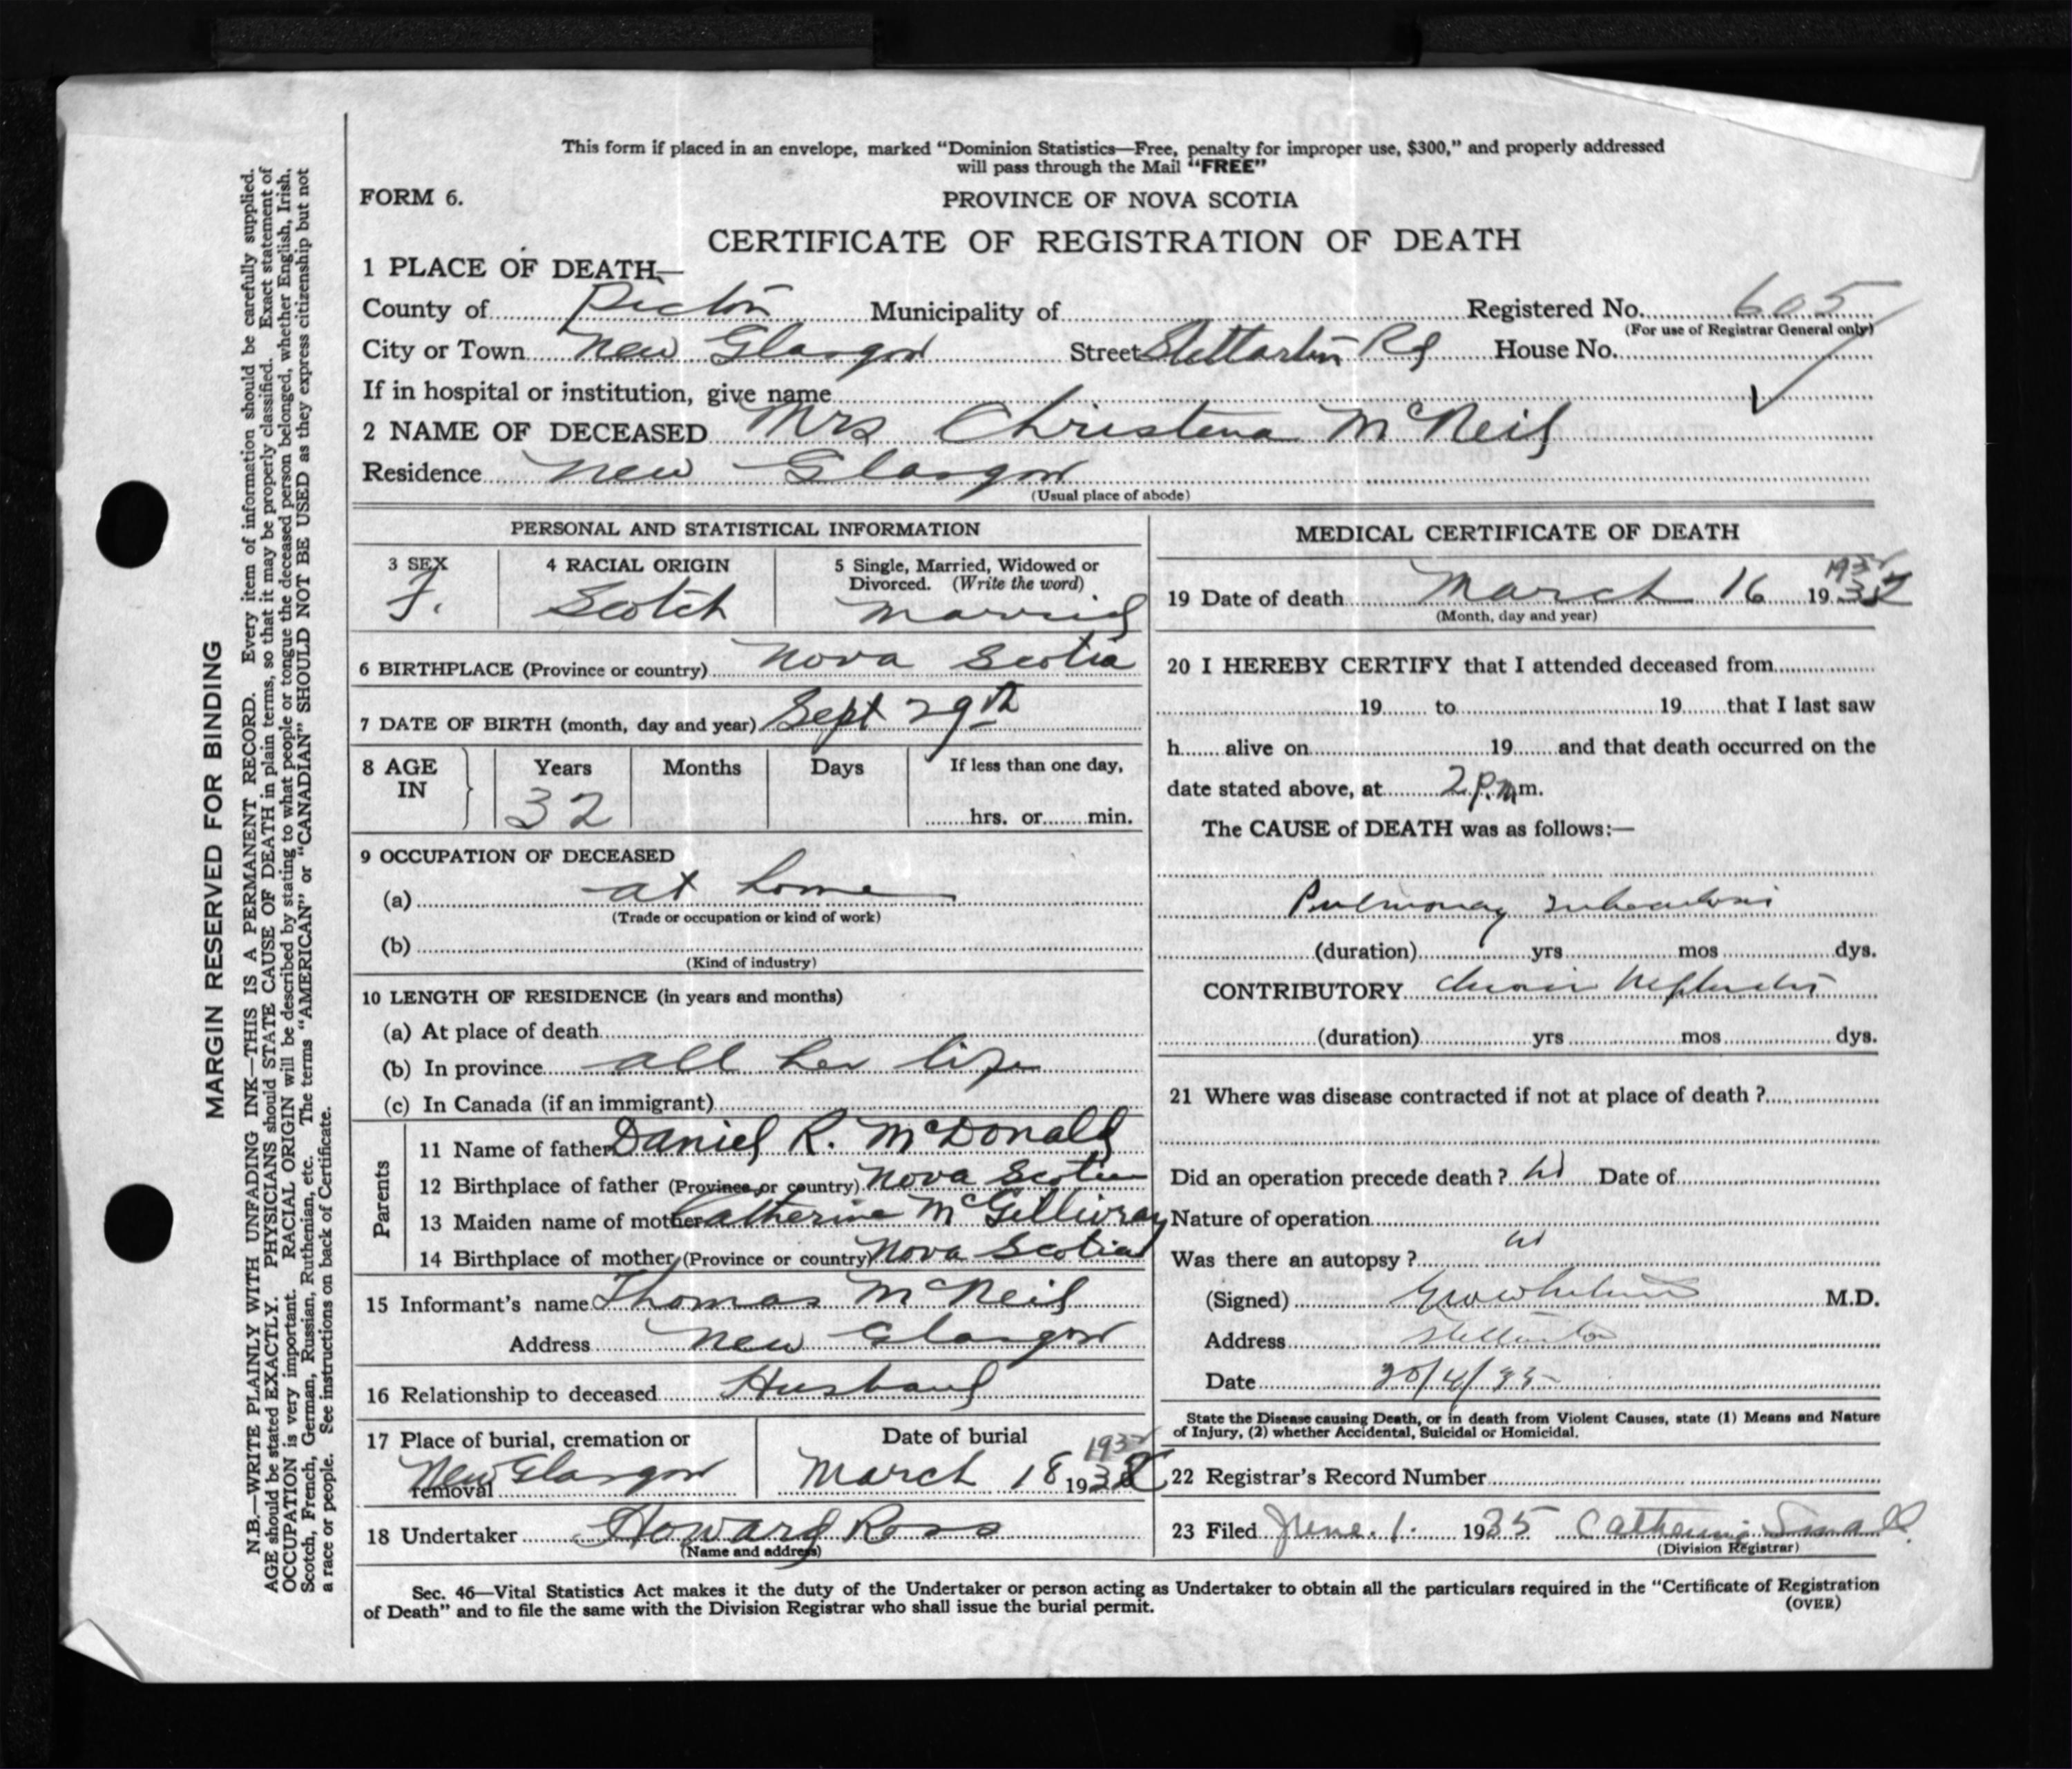 This form if placed in an envelope, marked "Dominion Statistics—Free, penalty for improper use, $300," and properly addressed
will pass through the Mail "FREE"
FORM 6.
PROVINCE OF NOVA SCOTIA
CERTIFICATE OF REGISTRATION OF DEATH
1 PLACE OF DEATH—
County of Pictou Municipality of Registered No. 605
(For use of Registrar General only)
City or Town New Glasgow Street Stellarton Rd House No.
If in hospital or institution, give name
2 NAME OF DECEASED Mrs Christena McNeil
Residence New Glasgow
(Usual place of abode)
PERSONAL AND STATISTICAL INFORMATION
3 SEX 4 RACIAL ORIGIN 5 Single, Married, Widowed or
Divorced. (Write the word)
F. Scotch Married
6 BIRTHPLACE (Province or country) Nova Scotia
7 DATE OF BIRTH (month, day and year) Sept 29th
8 AGE IN Years Months Days If less than one day,
32 hrs. or min.
9 OCCUPATION OF DECEASED
(a) at home
(Trade or occupation or kind of work)
(b)
(Kind of industry)
10 LENGTH OF RESIDENCE (in years and months)
(a) At place of death
(b) In province all her life
(c) In Canada (if an immigrant)
Parents
11 Name of father Daniel R. McDonald
12 Birthplace of father (Province or country) Nova Scotia
13 Maiden name of mother Catherine McGillivray
14 Birthplace of mother (Province or country) Nova Scotia
15 Informant's name Thomas McNeil
Address New Glasgow
16 Relationship to deceased Husband
17 Place of burial, cremation or removal New Glasgow
Date of burial
March 18 193
18 Undertaker Howard Ross
(Name and address)
MEDICAL CERTIFICATE OF DEATH
19 Date of death March 16 193
(Month, day and year)
20 I HEREBY CERTIFY that I attended deceased from
19 to 19 that I last saw
h alive on 19 and that death occurred on the
date stated above, at 2 p.m m.
The CAUSE of DEATH was as follows:—
Pulmonary Tuberculosis
(duration) yrs mos dys.
CONTRIBUTORY Chronic Nephritis
(duration) yrs mos dys.
21 Where was disease contracted if not at place of death ?
Did an operation precede death ? No Date of
Nature of operation
Was there an autopsy ? No
(Signed) M.D.
Address Stellarton
Date
State the Disease causing Death, or in death from Violent Causes, state (1) Means and Nature
of Injury, (2) whether Accidental, Suicidal or Homicidal.
22 Registrar's Record Number
23 Filed June. 1. 1935 Catherine Small
(Division Registrar)
Sec. 46—Vital Statistics Act makes it the duty of the Undertaker or person acting as Undertaker to obtain all the particulars required in the "Certificate of Registration
of Death" and to file the same with the Division Registrar who shall issue the burial permit.
(OVER)
MARGIN RESERVED FOR BINDING
N.B.—WRITE PLAINLY WITH UNFADING INK—THIS IS A PERMANENT RECORD. Every item of information should be carefully supplied.
AGE should be stated EXACTLY. PHYSICIANS should STATE CAUSE OF DEATH in plain terms, so that it may be properly classified. Exact statement of
OCCUPATION is very important. RACIAL ORIGIN will be described by stating to what people or tongue the deceased person belonged, whether English, Irish,
Scotch, French, German, Russian, Ruthenian, etc. The terms "AMERICAN" or "CANADIAN" SHOULD NOT BE USED as they express citizenship but not
a race or people. See instructions on back of Certificate.